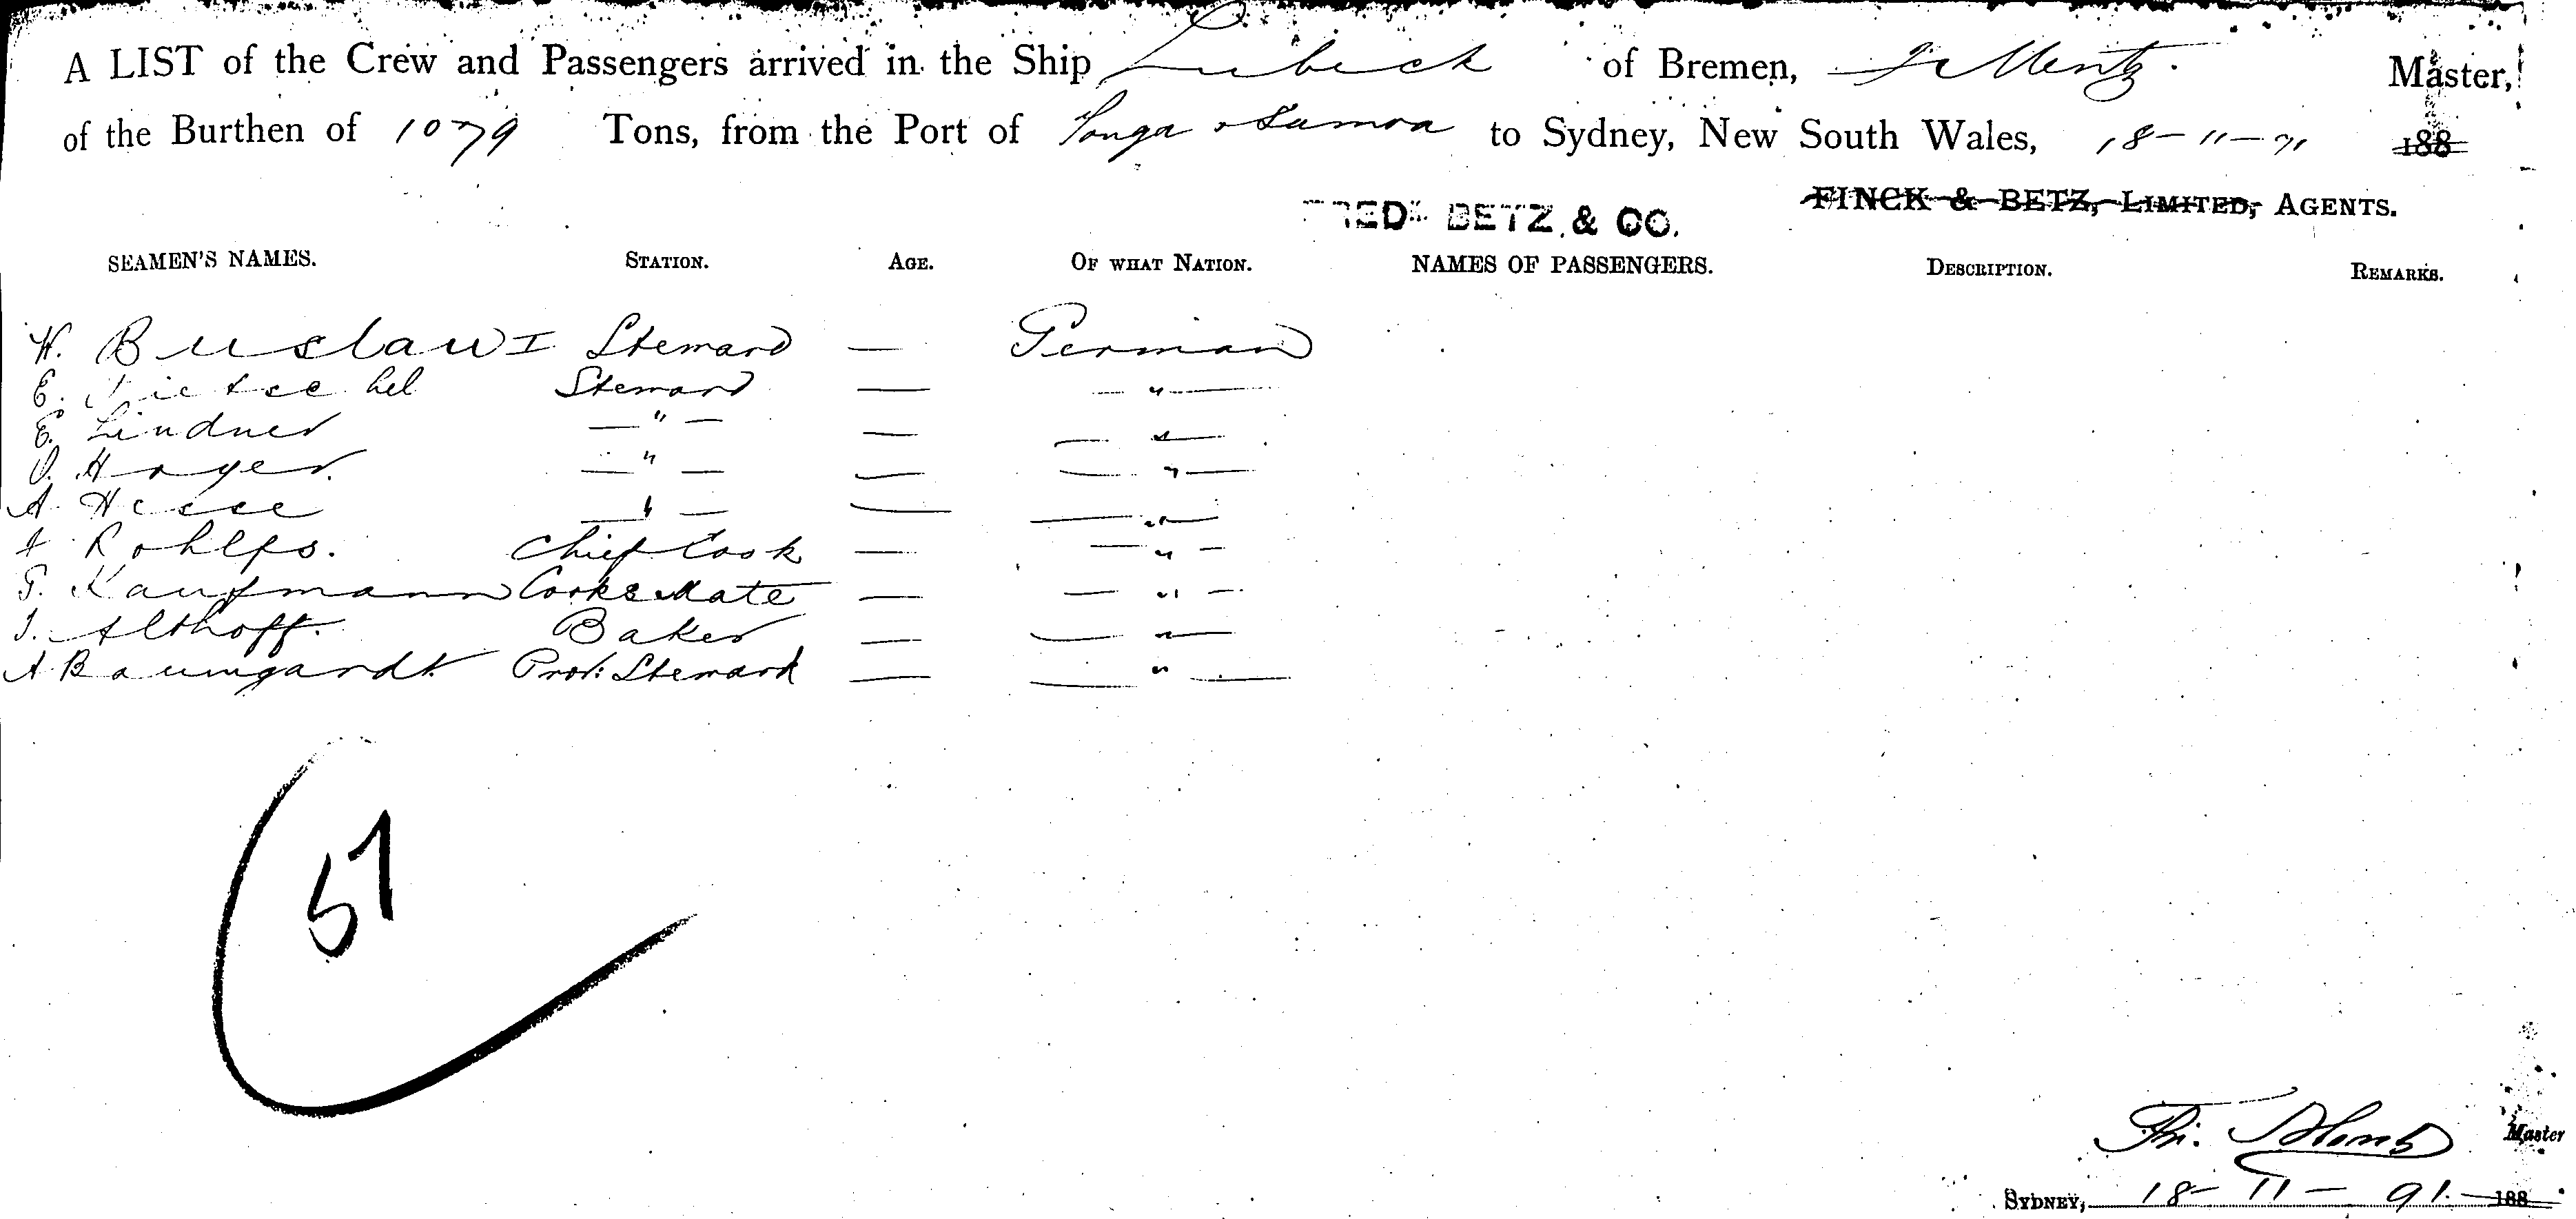 A LIST of the Crew and Passengers arrived in the Ship Lubeck of Bremen, Mentz. Master,
of the Burthen of 1079 Tons, from the Port of Tonga & Samoa to Sydney, New South Wales, 18-11-91 188
FINCK & BETZ, LIMITED, AGENTS.
FREDK BETZ & CO.
SEAMEN'S NAMES. STATION. AGE. OF WHAT NATION. NAMES OF PASSENGERS. DESCRIPTION. REMARKS.
H. Buslaw I Steward — German
E. Steward — — " —
E. Lindner — " — — — " —
O. Hoyer. — " — — — " —
A. Hesse — " — — — " —
Rohlfs. Chief Cook — — " —
Kaufmann Cooks Mate — — " —
J. Althoff. Baker — — " —
A Baumgardt Prov: Steward — — " —
57
Master
SYDNEY, 18-11-91. 188